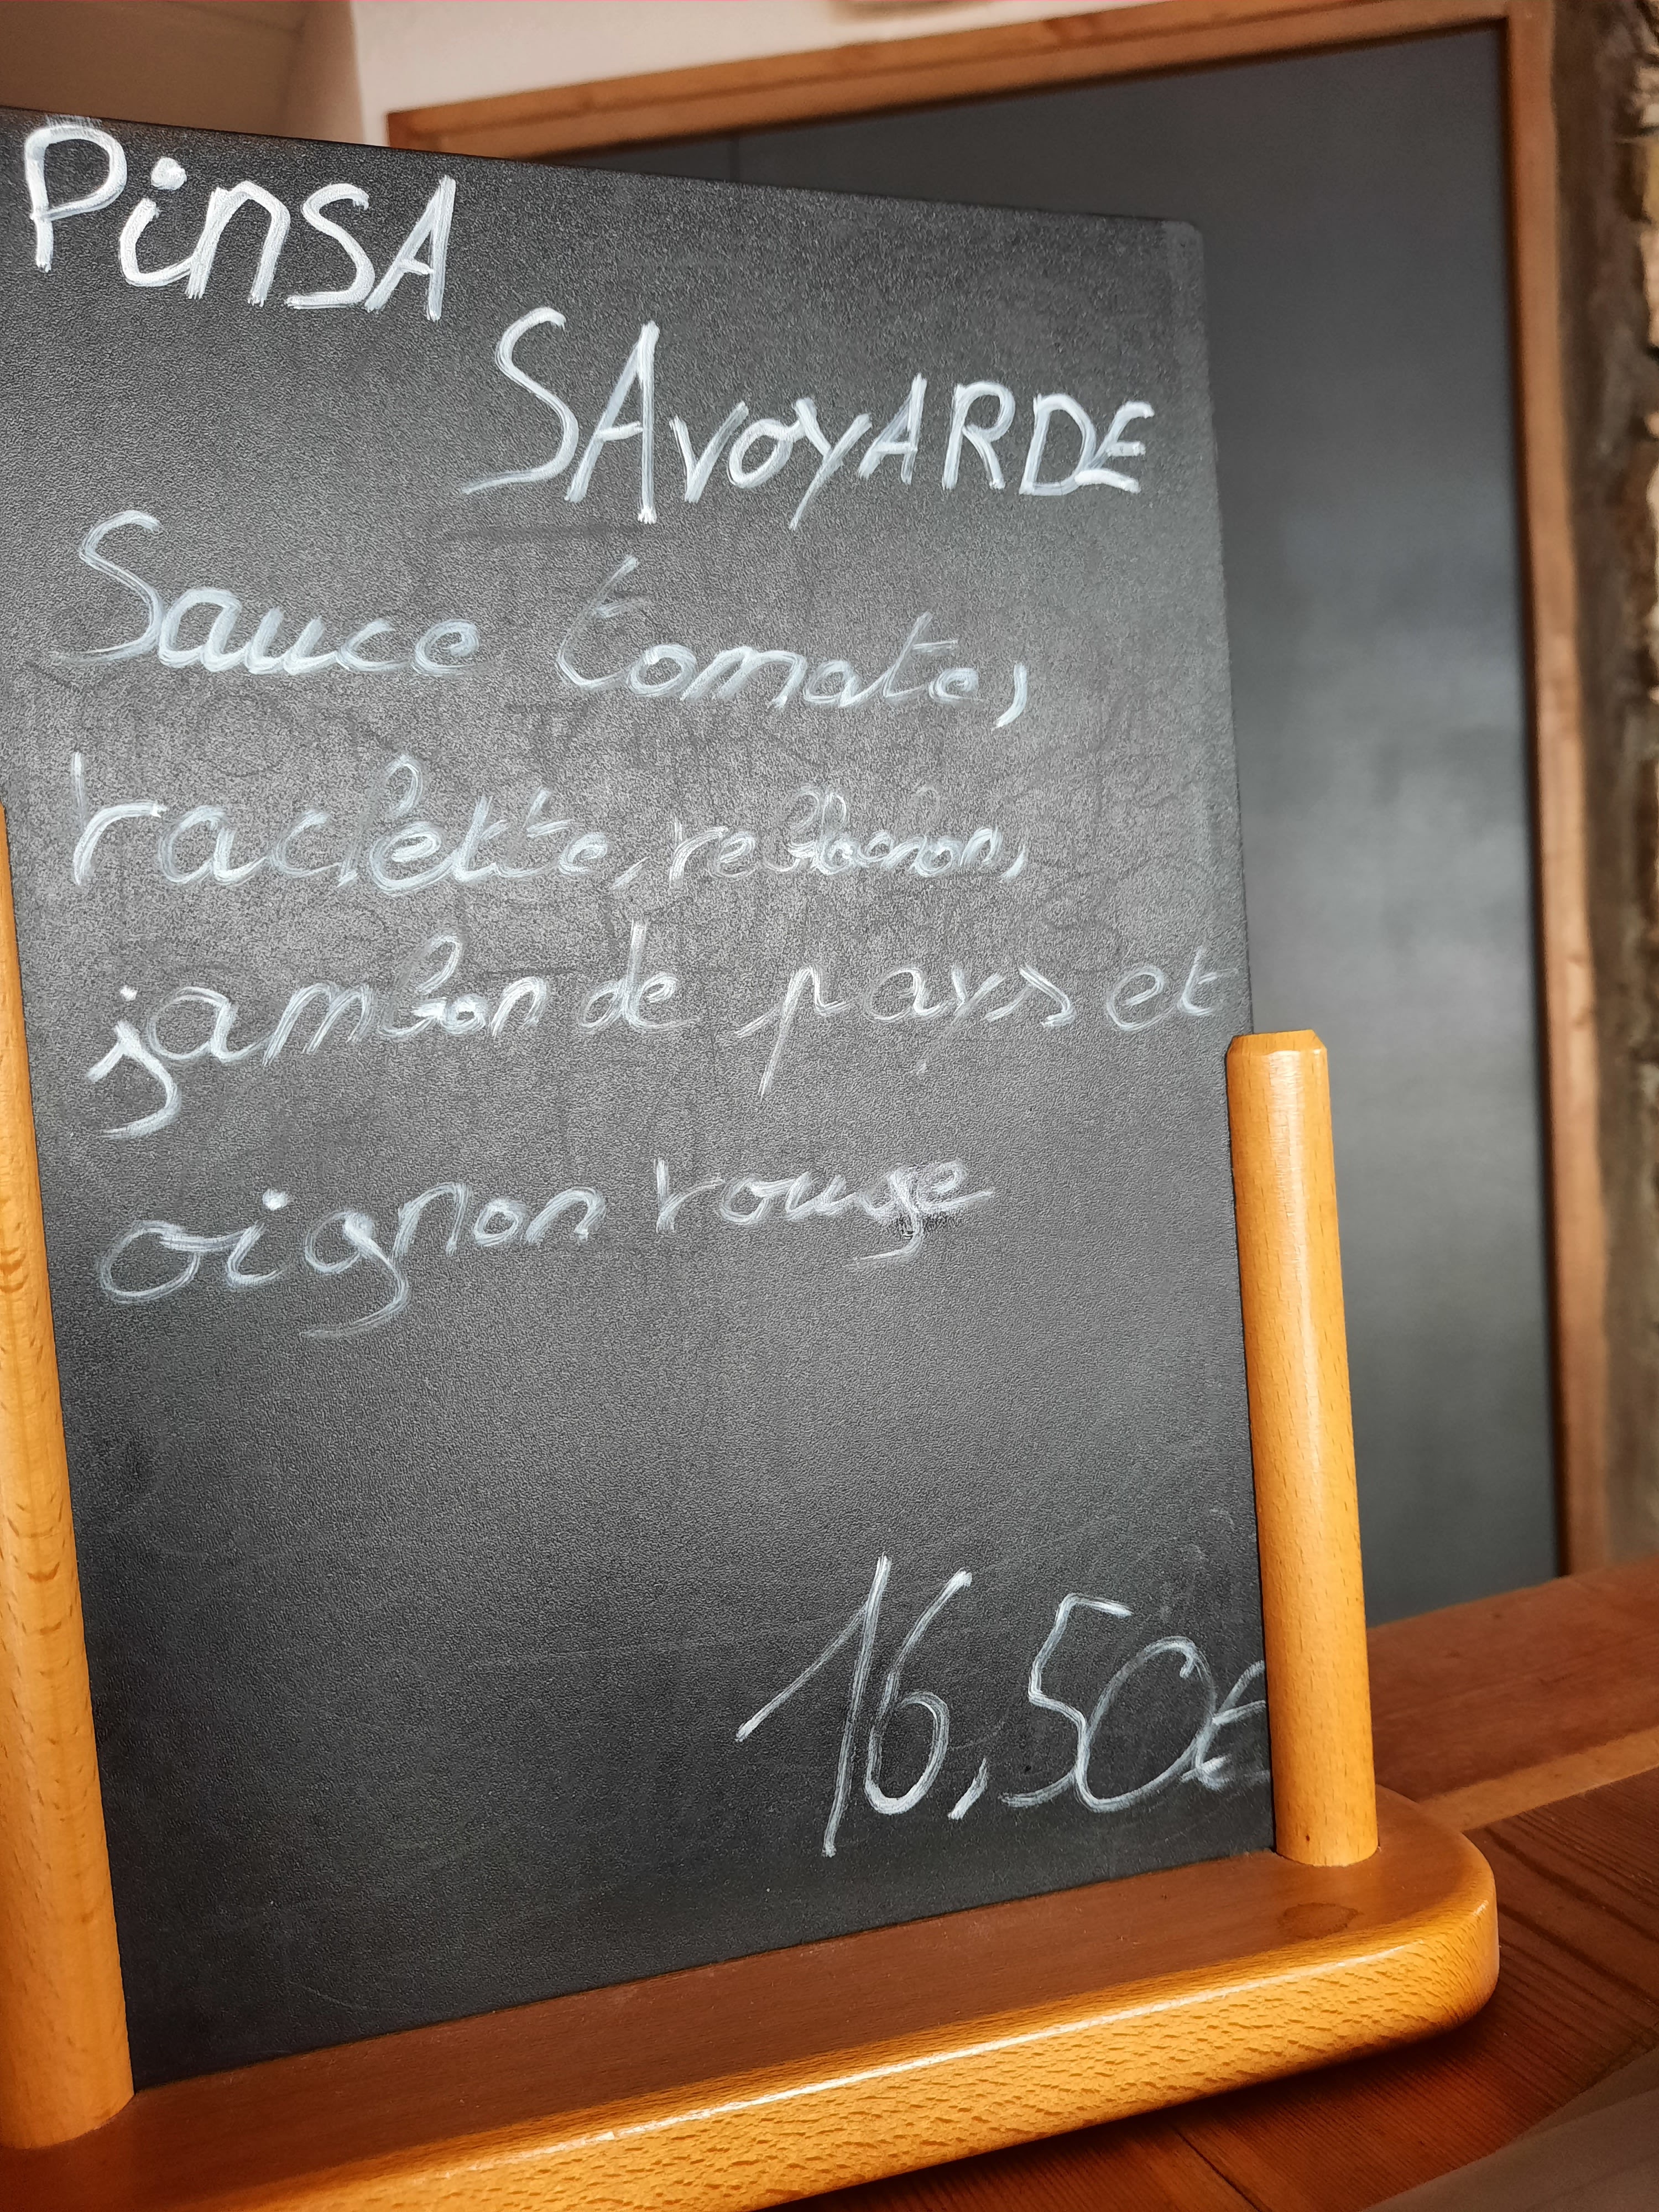 PinSA
SAvoyARDE
Sauce tomate,
raclette, reblochon,
jambon de pays et
oignon rouge
16,50€